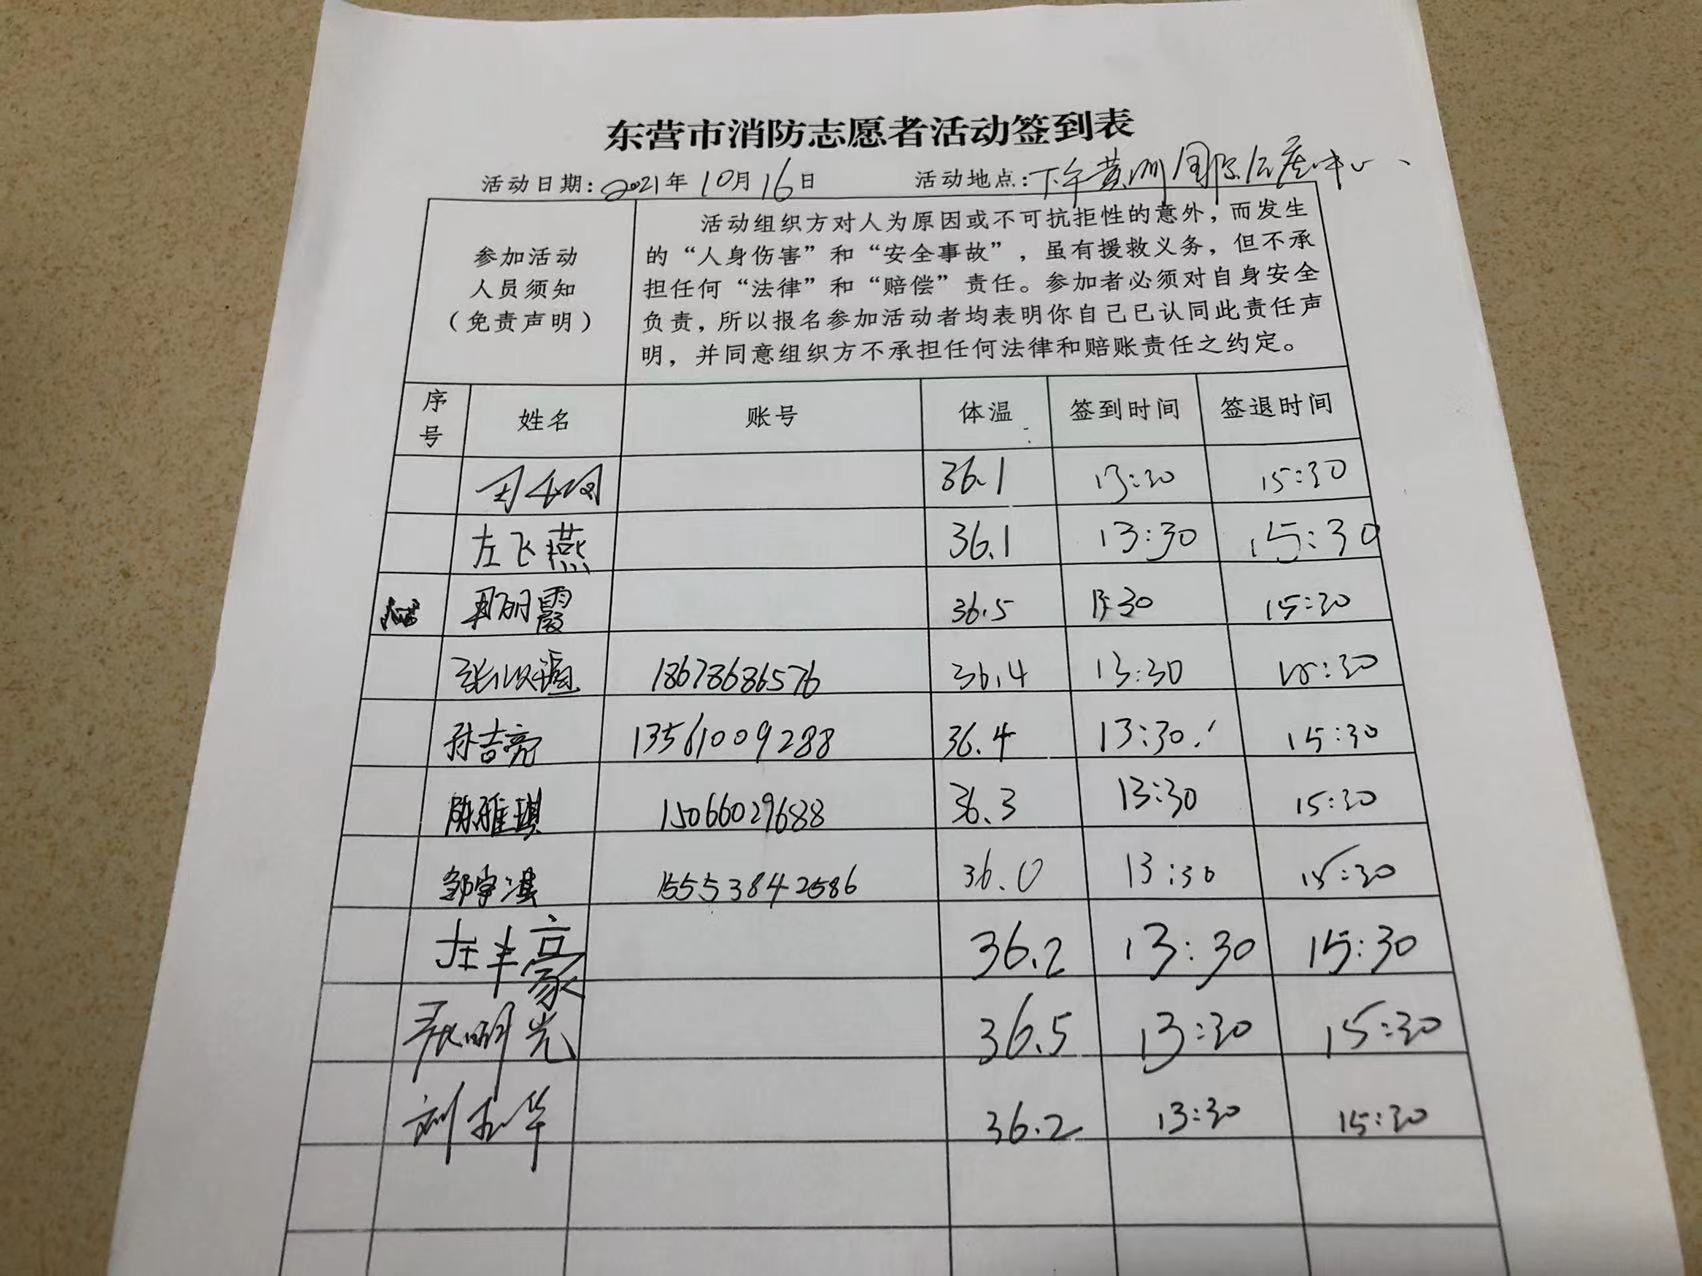 东营市消防志愿者活动签到表
活动日期:2021年10月16日 活动地点:下午黄河国际会展中心、
参加活动
人员须知
(免责声明)
活动组织方对人为原因或不可抗拒性的意外,而发生
的“人身伤害”和“安全事故”,虽有援救义务,但不承
担任何“法律”和“赔偿”责任。参加者必须对自身安全
负责,所以报名参加活动者均表明你自己已认同此责任声
明,并同意组织方不承担任何法律和赔账责任之约定。
序号 姓名 账号 体温 签到时间 签退时间
36.1 13:30 15:30
左飞燕 36.1 13:30 15:30
丽霞 36.5 13:30 15:30
张 18678686576 36.4 13:30 15:30
孙吉亮 13561009288 36.4 13:30. 15:30
陈雅琪 15066029688 36.3 13:30 15:30
邹宇淇 15553842586 36.0 13:30 15:30
庄丰豪 36.2 13:30 15:30
张明光 36.5 13:30 15:30
刘华 36.2 13:30 15:30